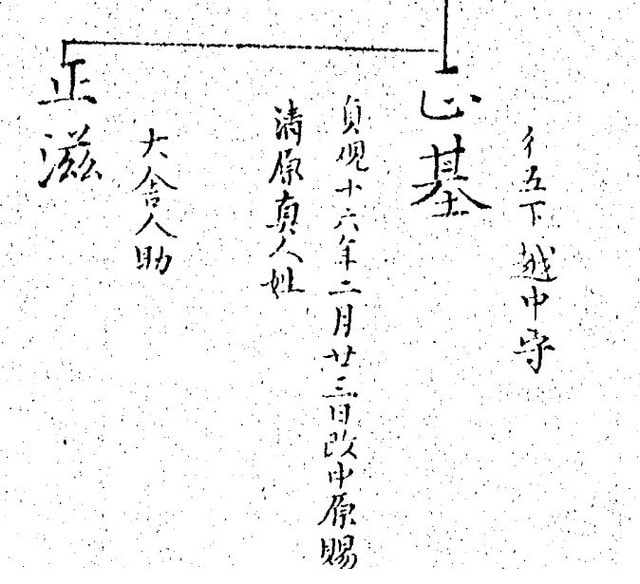 彳五下越中守
正基
貞観十六年二月廿三日改中原賜
清原真人姓
大舎人助
正滋